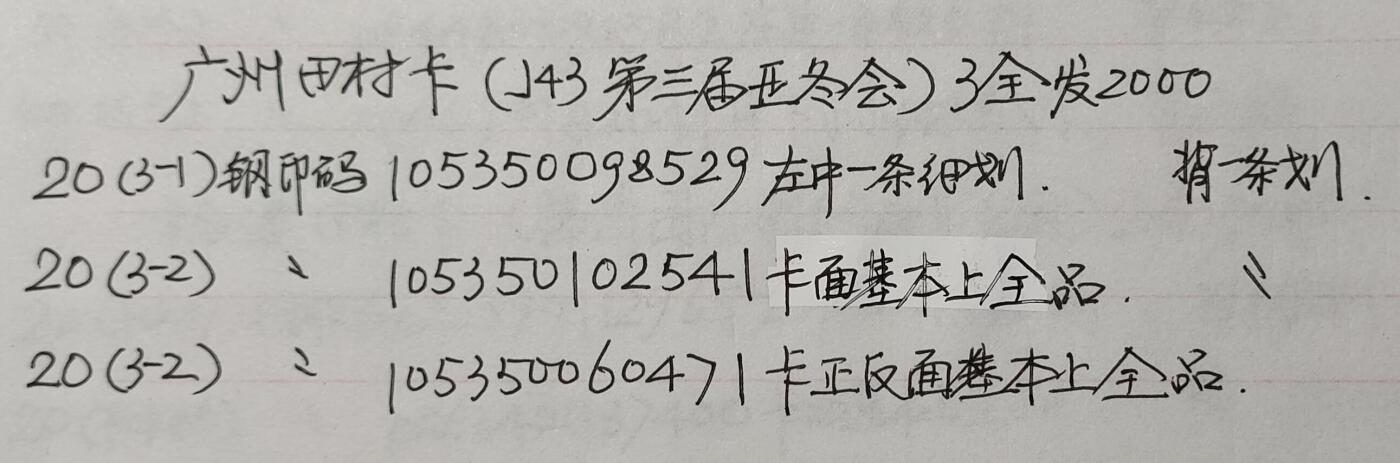 广州田村卡(J43第三届亚冬会)3全发2000
20(3-1)钢印码105350098529左中一条细划. 背一条划.
20(3-2) 〃 105350102541卡面基本上全品. 〃
20(3-2) 〃 105350060471卡正反面基本上全品.